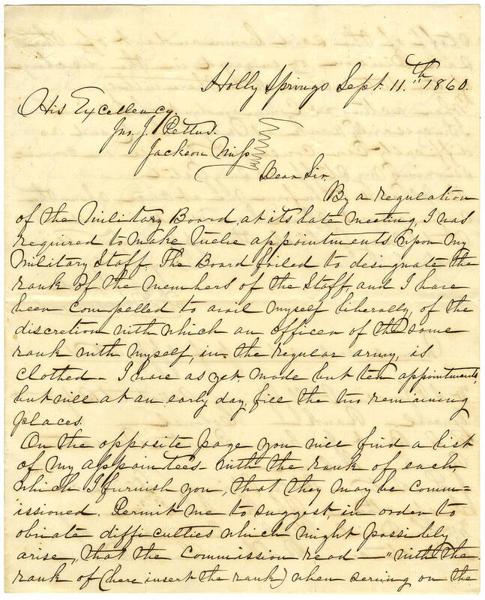 Holly Springs Sept. 11.th 1860.
His Excellency
Jno. J. Pettus.
Jackson Miss
Dear Sir.
By a regulation
of the Military Board, at its late meeting, I was
required to make twelve appointments upon my
Military Staff. The Board failed to designate the
rank of the members of the Staff, and I have
been compelled to avail myself liberally, of the
discretion with which an officer of the same
rank with myself, in the regular army, is
clothed. I have as yet made but ten appointments,
but will at an early day, fill the two remaining
places.
On the opposite page you will find a list
of my appointees with the rank of each
which I furnish you, that they may be comm-
issioned. Permit me to suggest, in order to
obviate difficulties which might possibly
arise, that the Commission read — "with the
rank of (here insert the rank) when serving on the